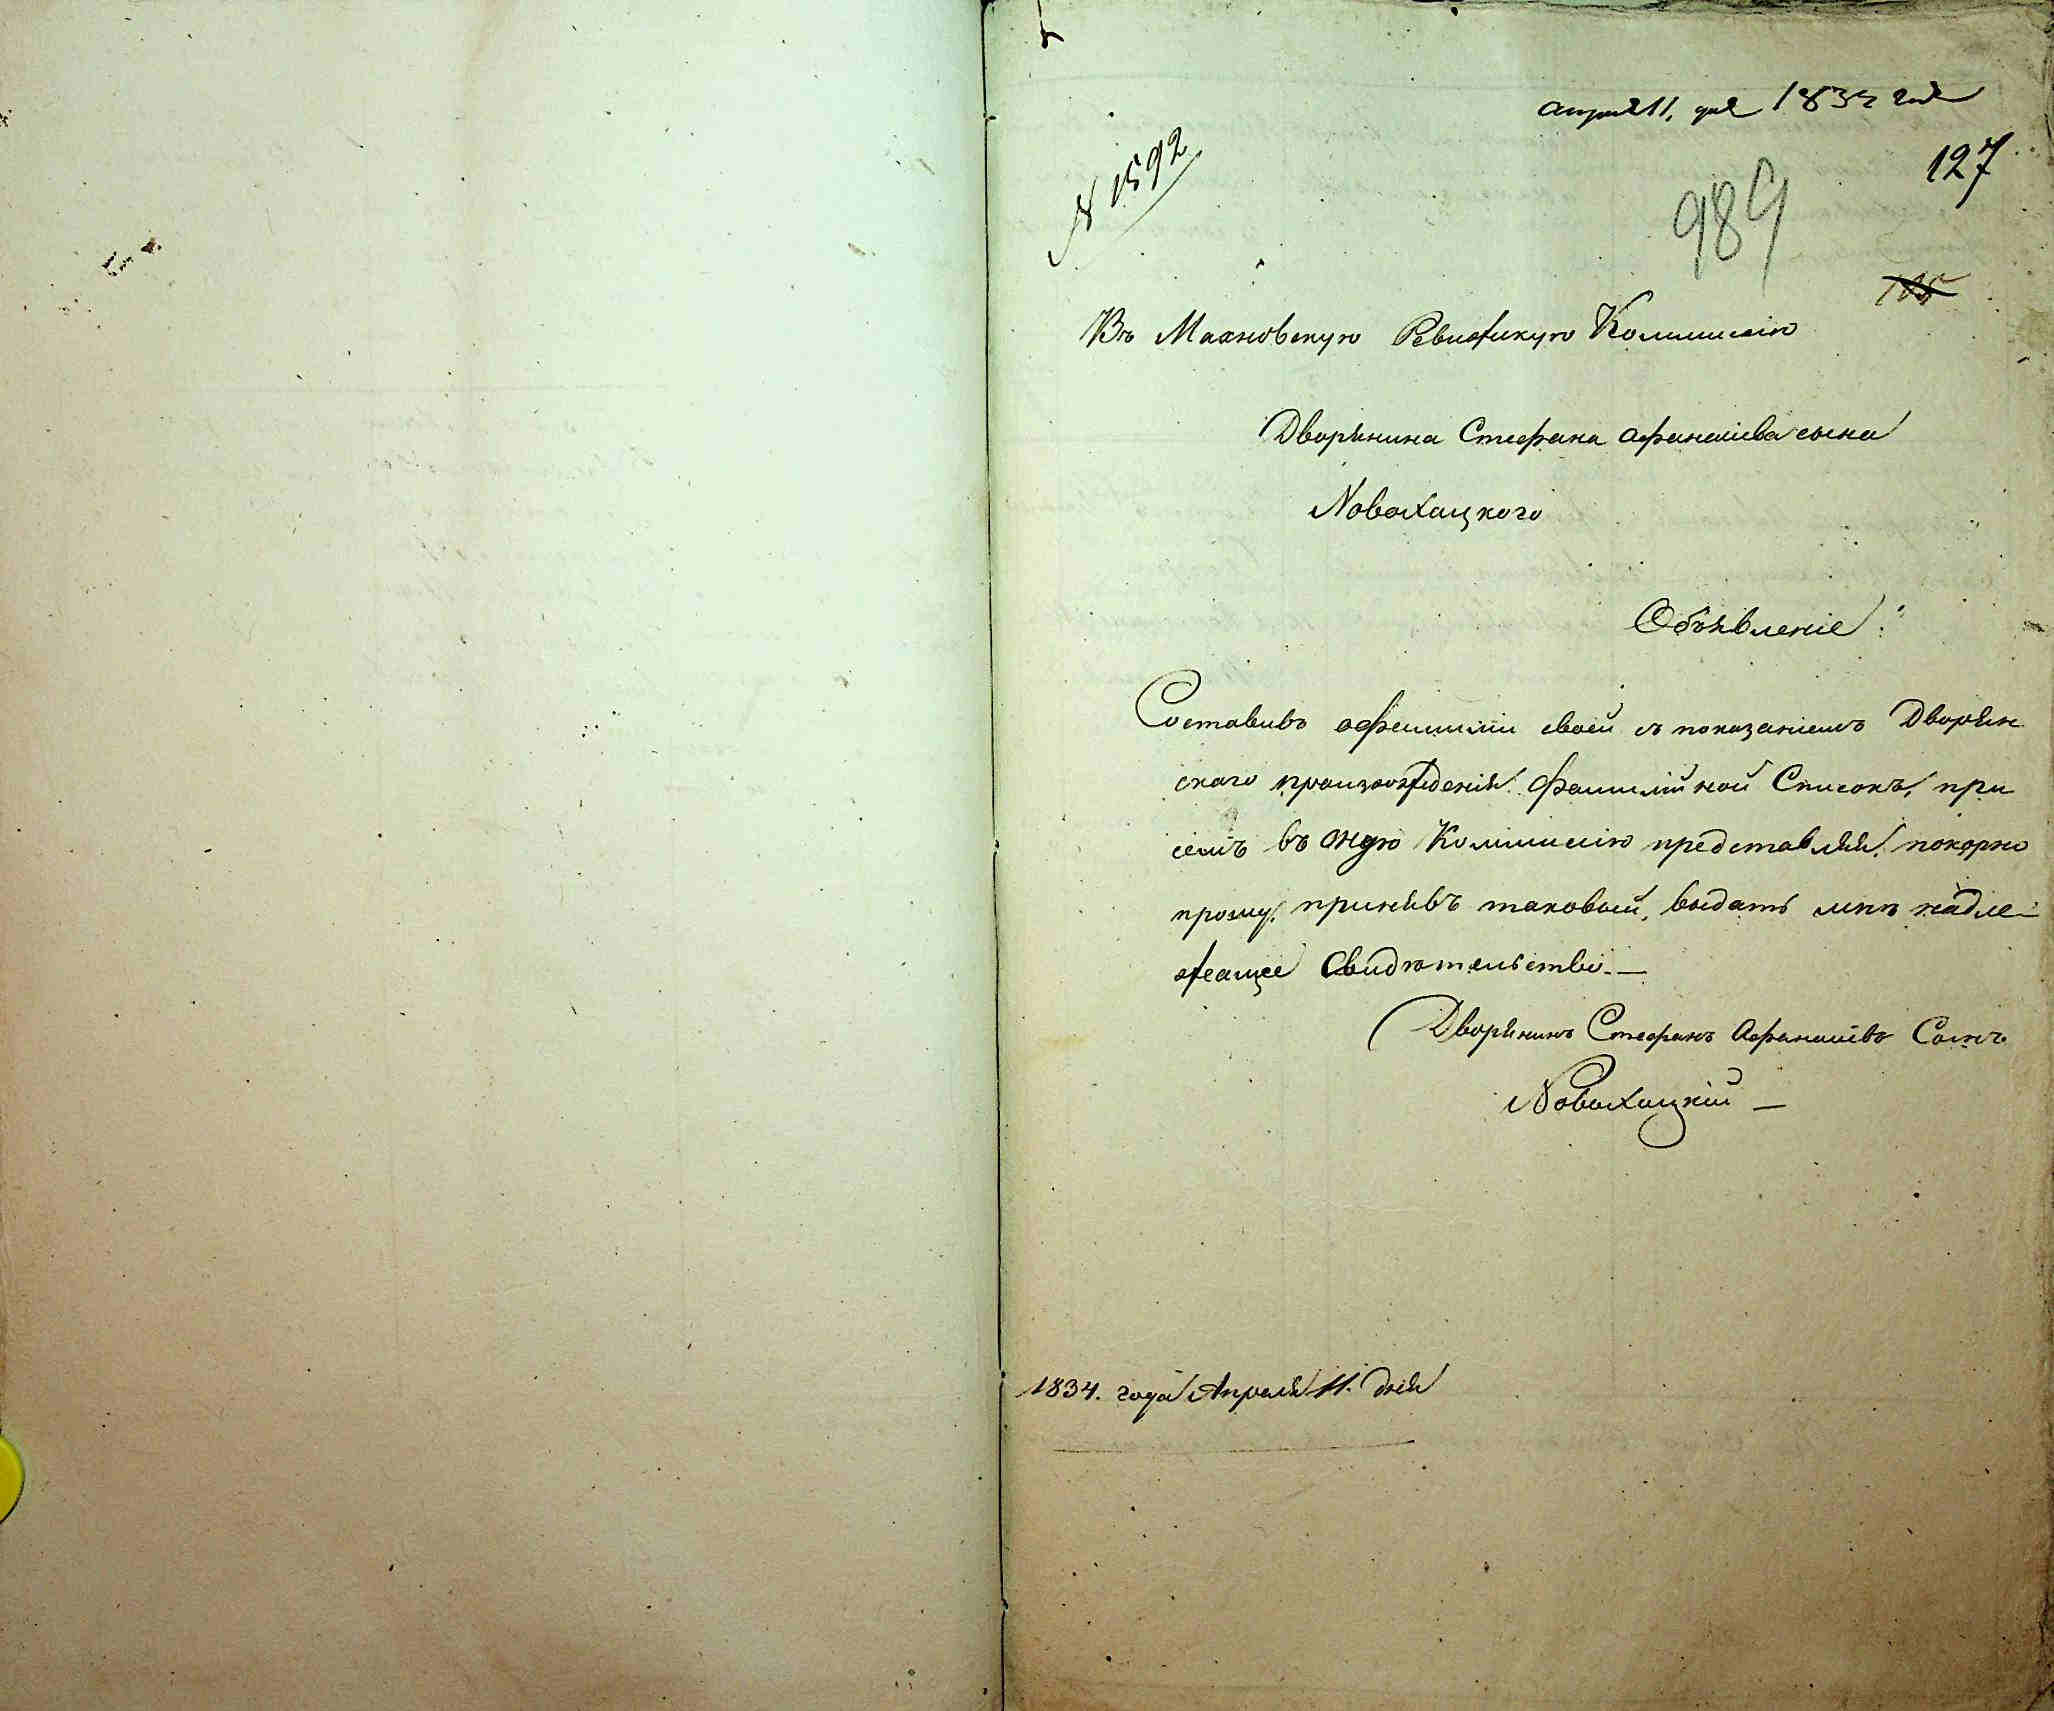 Апреля 11, дня 1834 года
№ 1592
127
989
105
Въ Махновскую Ревизкую Коммисію
Дворянина Стефана Афанасіева сына
Новохацкого
Объявленіе:
Составивъ офамиліи своей съ показаніемъ Дворян
скаго произхожденія Фамилійной Списокъ, при
семъ въ оную Коммисію представляя, покорно
прошу, принявъ таковый, выдать мнѣ надле-
жащее Свидѣтельство. —
Дворянинъ Стефанъ Афанасіевъ Сынъ
Новохацкій —
1834. года Апреля 11. дня